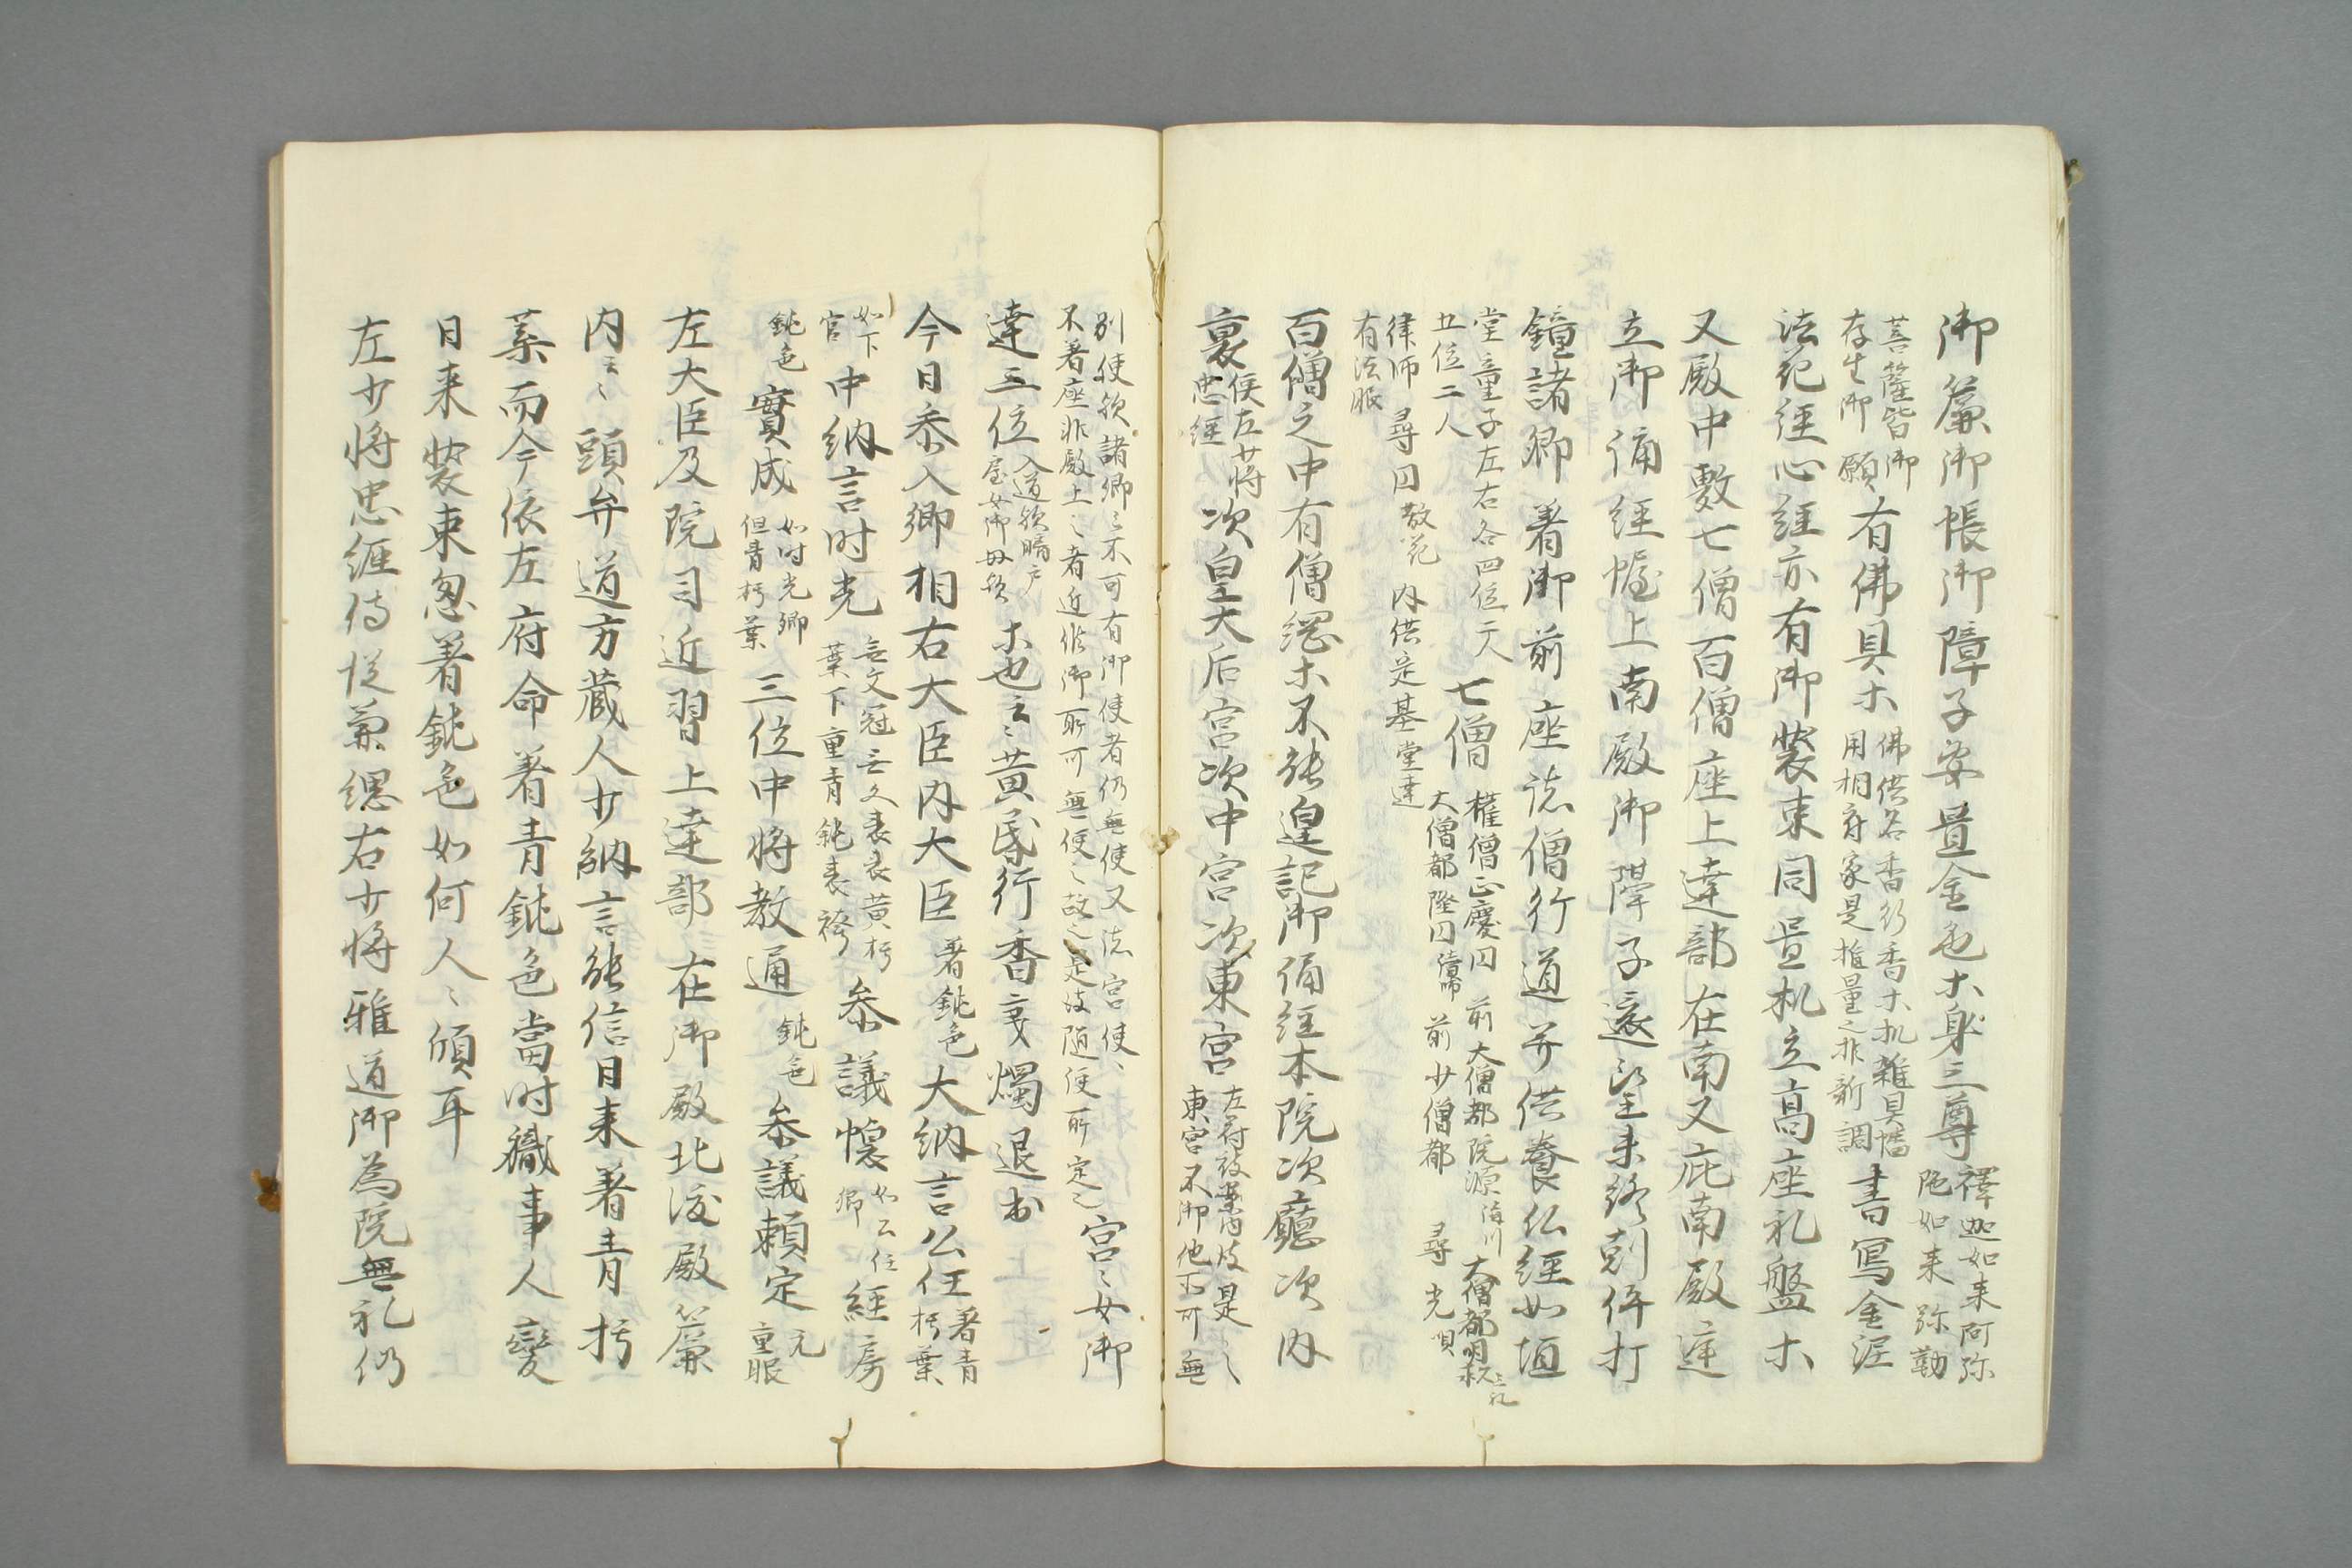 御簾御帳御障子安置金色木身三尊釋迦如来阿弥陁如来弥勒
菩薩皆御存生御願有佛具木佛供名香行香木机雑具幡用相府家是推量之非新調書寫金泥
法花経心経亦有御装束同置机立高座礼盤木
又殿中敷七僧百僧座上達部在南又庇南殿遶
立御誦経幄上南殿御障子遠望未終剋件打
鐘諸卿著御前座諸僧行道并供養仏経如恒
堂童子左右各四位二人五位二人七僧権僧正慶円前大僧都院源大僧都明救大僧都隆円前少僧都尋光唄
律師尋円散花内供定基堂達有法服
百僧之中有僧綱木不能遑記御誦経本院次廳次内
裏使左少将忠経次皇大后宮次中宮次東宮左府被案内皮是東宮不御他所可無
別使欤諸卿不可有御使者仍無使又法宮使不著座非殿上之者近修御所可無便故之是被随便所定宮女御
達三位入道欤晴戸室女御母欤木也云々黄昏行香裏燭退出
今日参入卿相右大臣内大臣著鈍色大納言公任著青朽葉
如下官中納言时光無文冠無文表衣黄朽葉下重青鈍表袴参議懐如公任卿経房
鈍色實成如时光卿但青朽葉三位中将教通鈍色参議頼定元重服
左大臣及院司近習上達部在御殿北渡殿簾
内云々頭弁道方蔵人少納言能信日来著青朽
葉而今依左府命著青鈍色當时職事人變
日来装束忽著鈍色如何人々傾耳
左少将忠経侍従兼綱右少将雅道御為院無礼仍